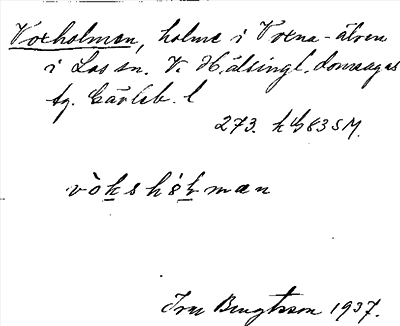 Voxholmen, holme i Voxna-älven
i Los sn. V. Hälsingl. domsagas
tg. Gävleb. l
273. h G83SM.
vòkshòḷmæn
Ivar Bengtsson 1937.